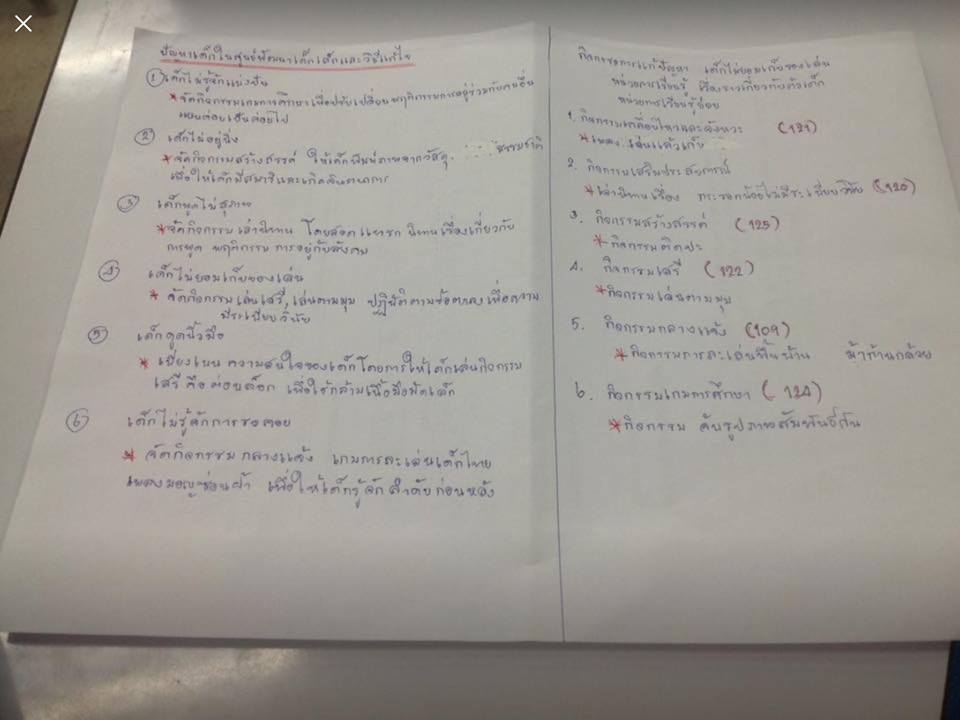 ปัญหาเด็กในศูนย์พัฒนาเด็กเล็กและวิธีแก้ไข
1 เด็กไม่รู้จักแบ่งปัน
* จัดกิจกรรมเกมการศึกษาเพื่อปรับเปลี่ยนพฤติกรรมการอยู่ร่วมกับคนอื่น
2 เด็กไม่อยู่นิ่ง
* จัดกิจกรรมสร้างสรรค์ ให้เด็กพิมพ์ภาพจากวัสดุ ธรรมชาติ
เพื่อให้เด็กมีสมาธิและเกิดจินตนาการ
3 เด็กพูดไม่สุภาพ
* จัดกิจกรรมเล่านิทาน โดยสอดแทรก นิทานเรื่องเกี่ยวกับ
การพูด พฤติกรรม การอยู่กับสังคม
4 เด็กไม่ยอมเก็บของเล่น
* จัดกิจกรรมเล่นเสรี, เล่นตามมุม ปฏิบัติตามข้อตกลงเพื่อความ
มีระเบียบวินัย
5 เด็กดูดนิ้วมือ
* เบี่ยงเบน ความสนใจของเด็กโดยการให้เด็กเล่นกิจกรรม
เสรี คือ ต่อบล็อก เพื่อใช้กล้ามเนื้อมือมัดเล็ก
6 เด็กไม่รู้จักการรอคอย
* จัดกิจกรรม กลางแจ้ง เกมการละเล่นเด็กไทย
เพลงมอญซ่อนผ้า เพื่อให้เด็กรู้จัก ลำดับก่อนหลัง
กิจกรรมการแก้ปัญหา เด็กไม่ยอมเก็บของเล่น
หน่วยการเรียนรู้ เรื่องราวเกี่ยวกับตัวเด็ก
หน่วยการเรียนรู้ย่อย
1. กิจกรรมเคลื่อนไหวและจังหวะ (121)
* เพลง เล่นแล้วเก็บ
2. กิจกรรมเสริมประสบการณ์
* เล่านิทานเรื่อง กระรอกน้อยไม่มีระเบียบวินัย (120)
3. กิจกรรมสร้างสรรค์ (125)
* กิจกรรมติดปะ
4. กิจกรรมเสรี (122)
* กิจกรรมเล่นตามมุม
5. กิจกรรมกลางแจ้ง (109)
* กิจกรรมการละเล่นพื้นบ้าน ม้าก้านกล้วย
6. กิจกรรมเกมการศึกษา (124)
* กิจกรรม จับรูปภาพสัมพันธ์กัน